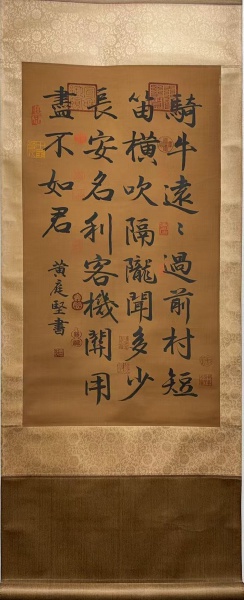 騎牛遠〻過前村短
笛橫吹隔隴聞多少
長安名利客機關用
盡不如君
黃庭堅書